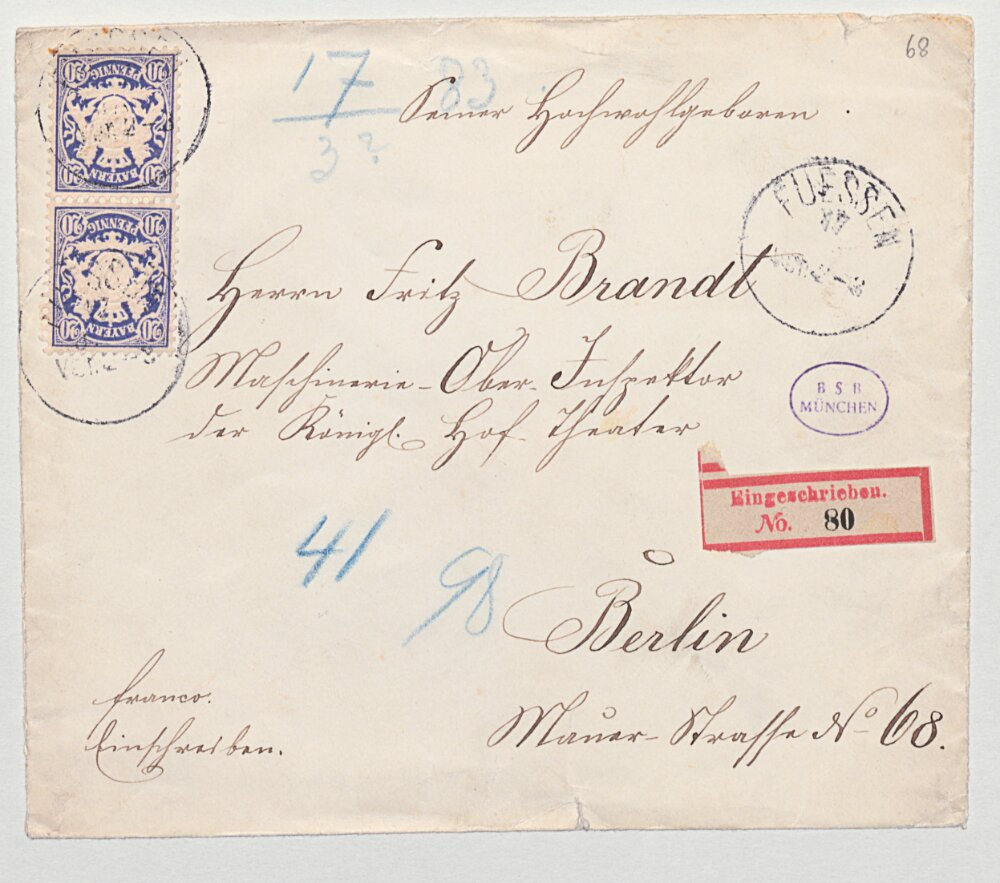 68
20 20
PFENNIG
BAYERN
20 20
20 20
PFENNIG
BAYERN
20 20
17 83
3?
Seiner Hochwohlgeboren.
FUESSEN
17
Herrn Fritz Brandt
Maschinerie-Ober-Inspektor
der Königl. Hof-Theater
B S B
MÜNCHEN
Eingeschrieben.
No. 80
41
98
Berlin
franco.
Einschreiben.
Mauer-Strasse No 68.